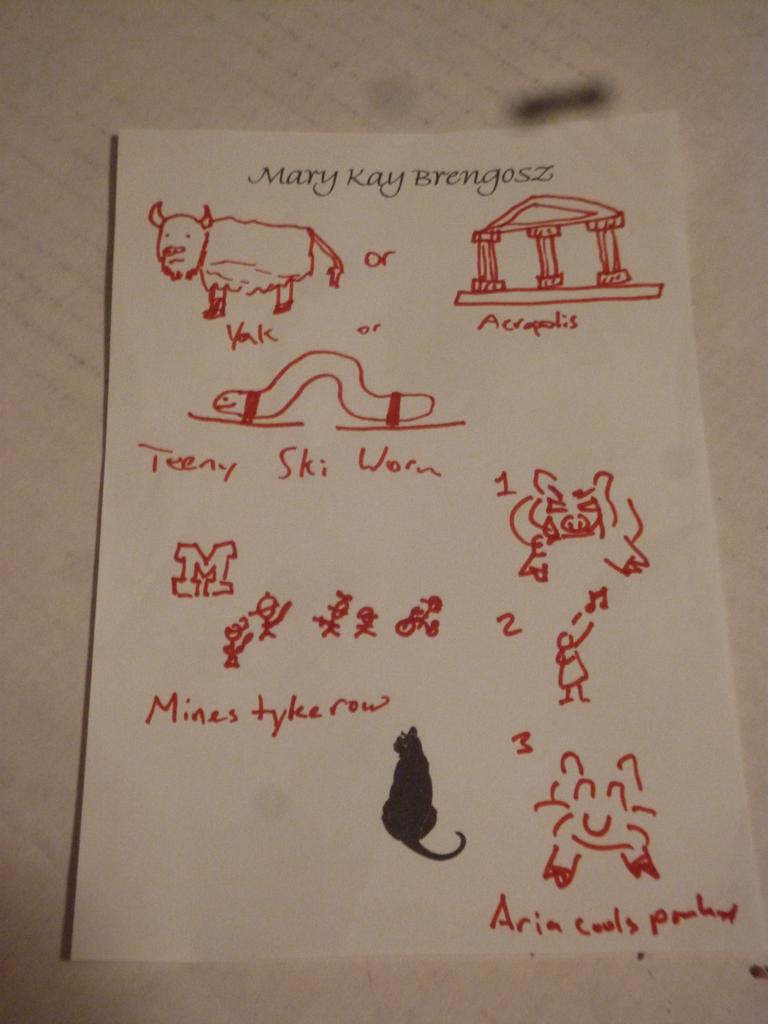 Mary Kay Brengosz
or
Yak
or
Acropolis
Teeny Ski Worm
1
M
2
Mines tyke row
3
Aria cools